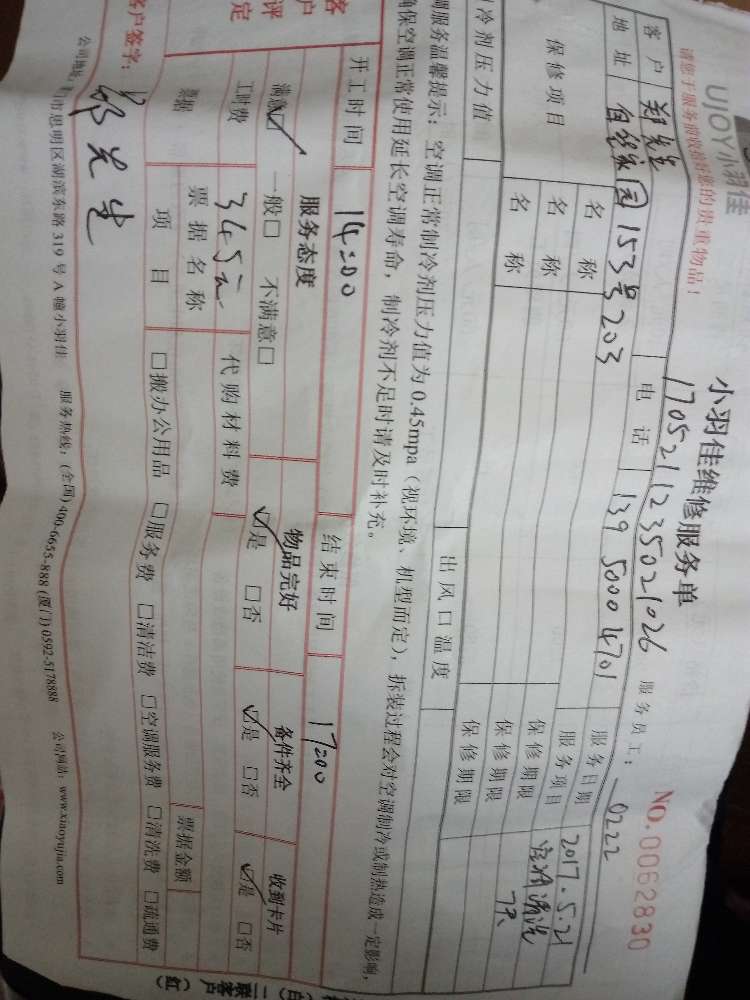 UJOY小羽佳
小羽佳维修服务单
NO. 0062830
请您于服务前收拾好您的贵重物品！
1705211235021026 服务员工： 0222
客户 郑先生 电话 139 5000 4701 服务日期 2017.5.21
地址 自然家园153号203 服务项目 空净清洗
保修项目 名称 保修期限 7天
名称 保修期限
名称 保修期限
冷剂压力值 出风口温度
调服务温馨提示：空调正常制冷剂压力值为 0.45mpa（视环境、机型而定），拆装过程会对空调制冷或制热造成一定影响，
确保空调正常使用延长空调寿命，制冷剂不足时请及时补充。
开工时间 14:00 结束时间 17:00
客户评定 服务态度 物品完好 备件齐全 收到卡片
满意☑ 一般□ 不满意□ ☑是 □否 ☑是 □否 ☑是 □否
工时费 345元 代购材料费
票据 票据名称 票据金额
项目 □搬办公用品 □服务费 □清洁费 □空调服务费 □清洗费 □疏通费
客户签字： 郑先生
公司地址： 市思明区湖滨东路 319 号 A 幢小羽佳 服务热线：(全国) 400-6655-888 (厦门) 0592-5178888 公司网站：www.xiaoyujia.com
二联客户（红）